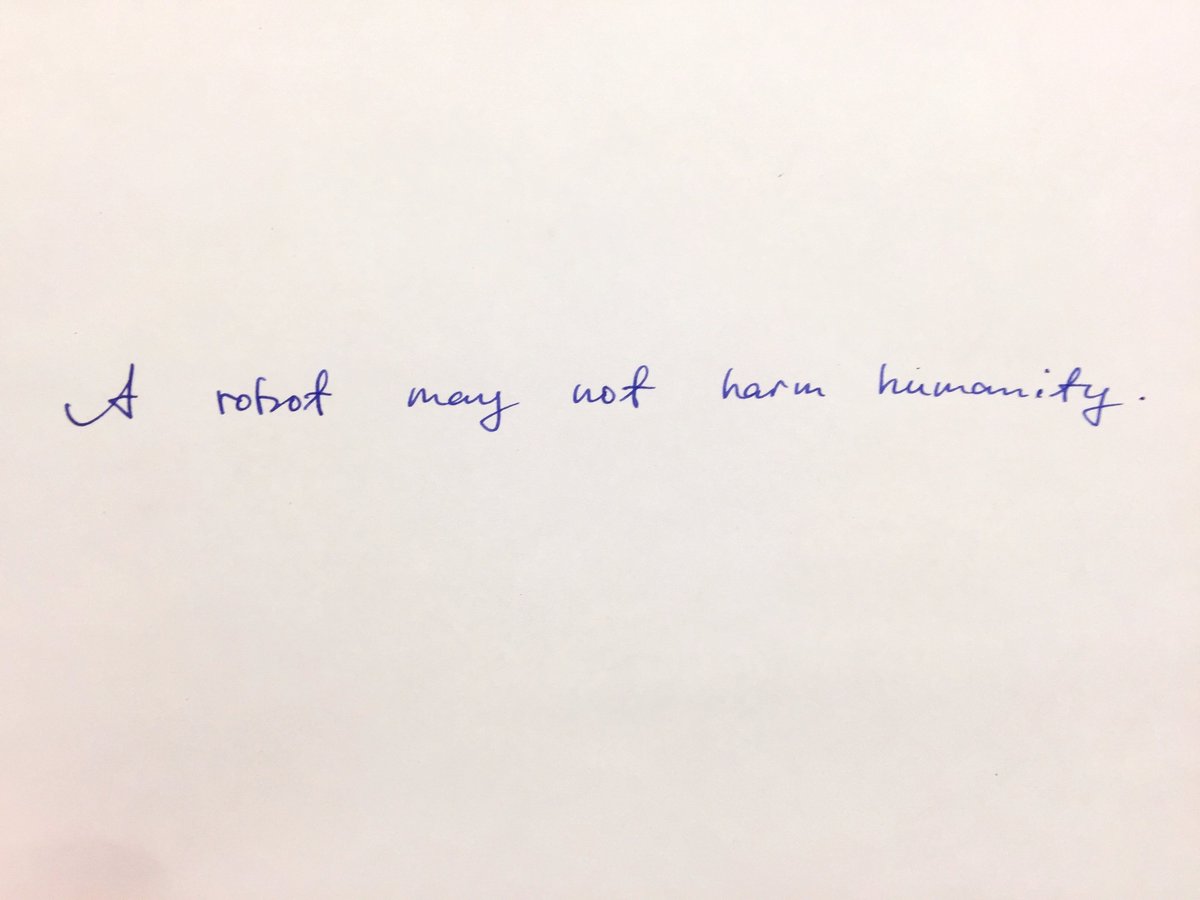 A robot may not harm humanity.